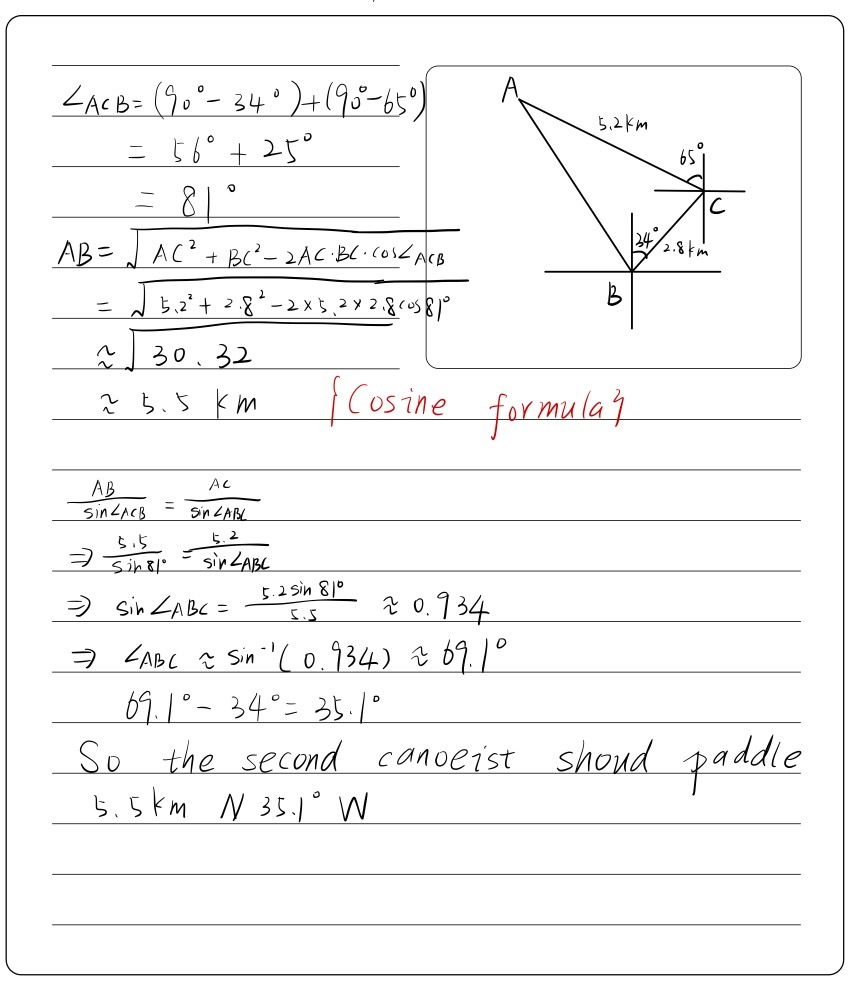 ∠ACB = (90° - 34°) + (90° - 65°)
= 56° + 25°
= 81°
AB = √(AC² + BC² - 2AC·BC·cos∠ACB)
= √(5.2² + 2.8² - 2 × 5.2 × 2.8 cos 81°)
≈ √30.32
≈ 5.5 km {Cosine formula}
A
5.2km
65°
C
34°
2.8km
B
AB/sin∠ACB = AC/sin∠ABC
⇒ 5.5/sin81° = 5.2/sin∠ABC
⇒ sin∠ABC = 5.2 sin 81°/5.5 ≈ 0.934
⇒ ∠ABC ≈ sin⁻¹(0.934) ≈ 69.1°
69.1° - 34° = 35.1°
So the second canoeist shoud paddle
5.5km N 35.1° W